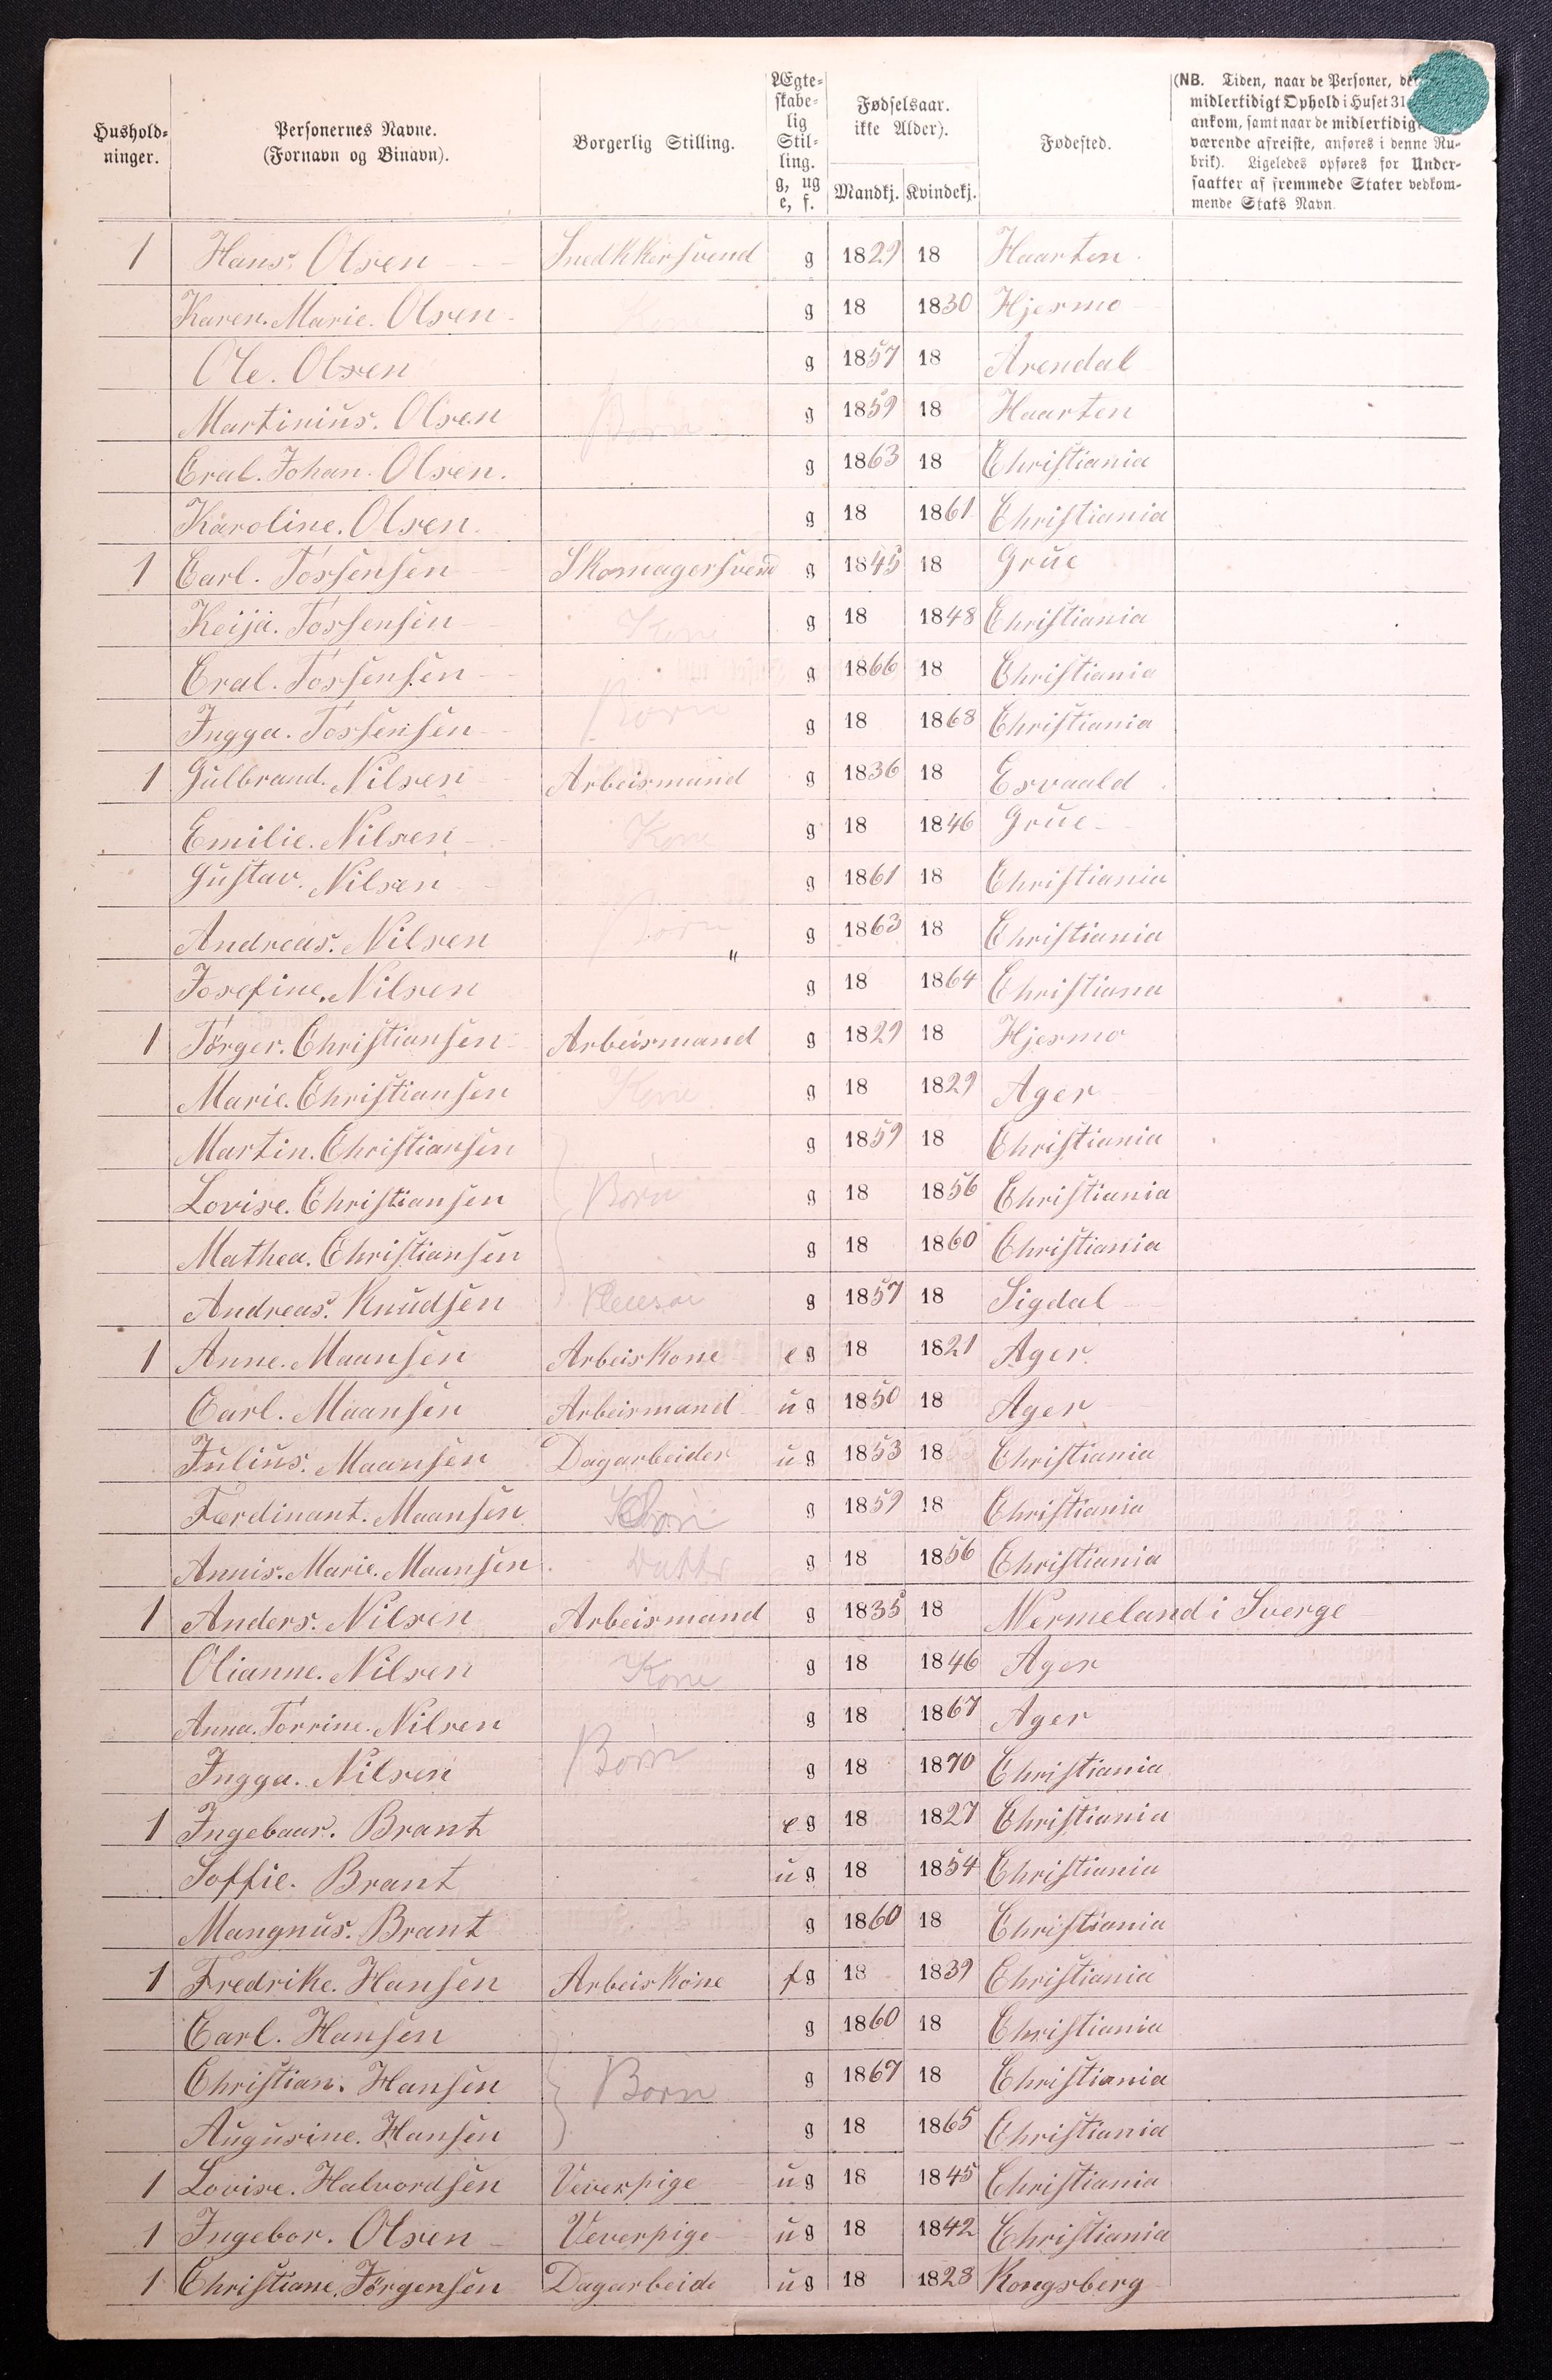 Hushold-
ninger.
Personernes Navne.
(Fornavn og Binavn).
Borgerlig Stilling.
Ægte-
skabe-
lig
Stil-
ling.
g, ug
e, f.
Fødselsaar.
ikke Alder).
Mandkj. Kvindekj.
Fødested.
(NB. Tiden, naar de Personer, der
midlertidigt Ophold i Huset 31
ankom, samt naar de midlertidigt
værende afreiste, anføres i denne Ru-
brik). Ligeledes opføres for Under-
saatter af fremmede Stater vedkom-
mende Stats Navn.
1 Hans. Olsen Snedkkersvend g 1829 18 Haarten
Karen. Marie. Olsen g 18 1830 Hjermo
Ole. Olsen g 1857 18 Arendal
Martinius. Olsen Børn g 1859 18 Haarten
Cral. Johan. Olsen. g 1863 18 Christiania
Karoline. Olsen. g 18 1861 Christiania
1 Carl. Tossensen Skomagersvend g 1845 18 Grue
Keija. Tossensen Kone g 18 1848 Christiania
Cral. Tossensen g 1866 18 Christiania
Ingga. Tossensen Børn g 18 1868 Christiania
1 Gulbrand. Nilsen Arbeismand g 1836 18 Esvaald
Emilie. Nilsen Kone g 18 1846 Grue
Gustav. Nilsen g 1861 18 Christiania
Andreas. Nilsen Børn " g 1863 18 Christiania
Josefine. Nilsen g 18 1864 Christiana
1 Törger. Christiansen Arbeismand g 1829 18 Hjermo
Marie. Christiansen Kone g 18 1829 Ager
Martin. Christiansen g 1859 18 Christiania
Lovise. Christiansen Børn g 18 1856 Christiania
Mathea. Christiansen g 18 1860 Christiania
Andreas. Knudsen g 1857 18 Sigdal
1 Anne. Maansen Arbeiskone e g 18 1821 Ager
Carl. Maansen Arbeismand u g 1850 18 Ager
Julius. Maansen Dagarbeider u g 1853 18 Christiania
Ferdinant. Maansen g 1859 18 Christiania
Annis. Marie. Maansen Datter g 18 1856 Christiania
1 Anders. Nilsen Arbeismand g 1835 18 Wermeland i Sverge
Olianne. Nilsen Kone g 18 1846 Ager
Anna. Torrine. Nilsen g 18 1867 Ager
Ingga. Nilsen Børn g 18 1870 Christiania
1 Ingebaar. Brant e g 18 1827 Christiania
Soffie. Brant u g 18 1854 Christiania
Mangnus. Brant g 1860 18 Christiania
1 Fredrike. Hansen Arbeiskone f g 18 1839 Christiania
Carl. Hansen g 1860 18 Christiania
Christian. Hansen Børn g 1867 18 Christiania
Augusine. Hansen g 18 1865 Christiania
1 Lovise. Halvordsen Veverpige u g 18 1845 Christiania
1 Ingebor. Olsen Veverpige u g 18 1842 Christiania
1 Christiane. Jörgensen Dagarbeide u g 18 1828 Kongsberg